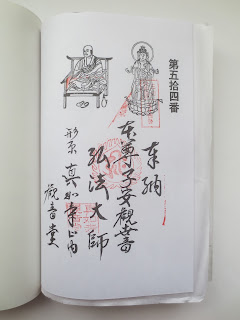 第五拾四番
奉納
本尊子安観世音
弘法大師
形原 真如寺山内
観音堂